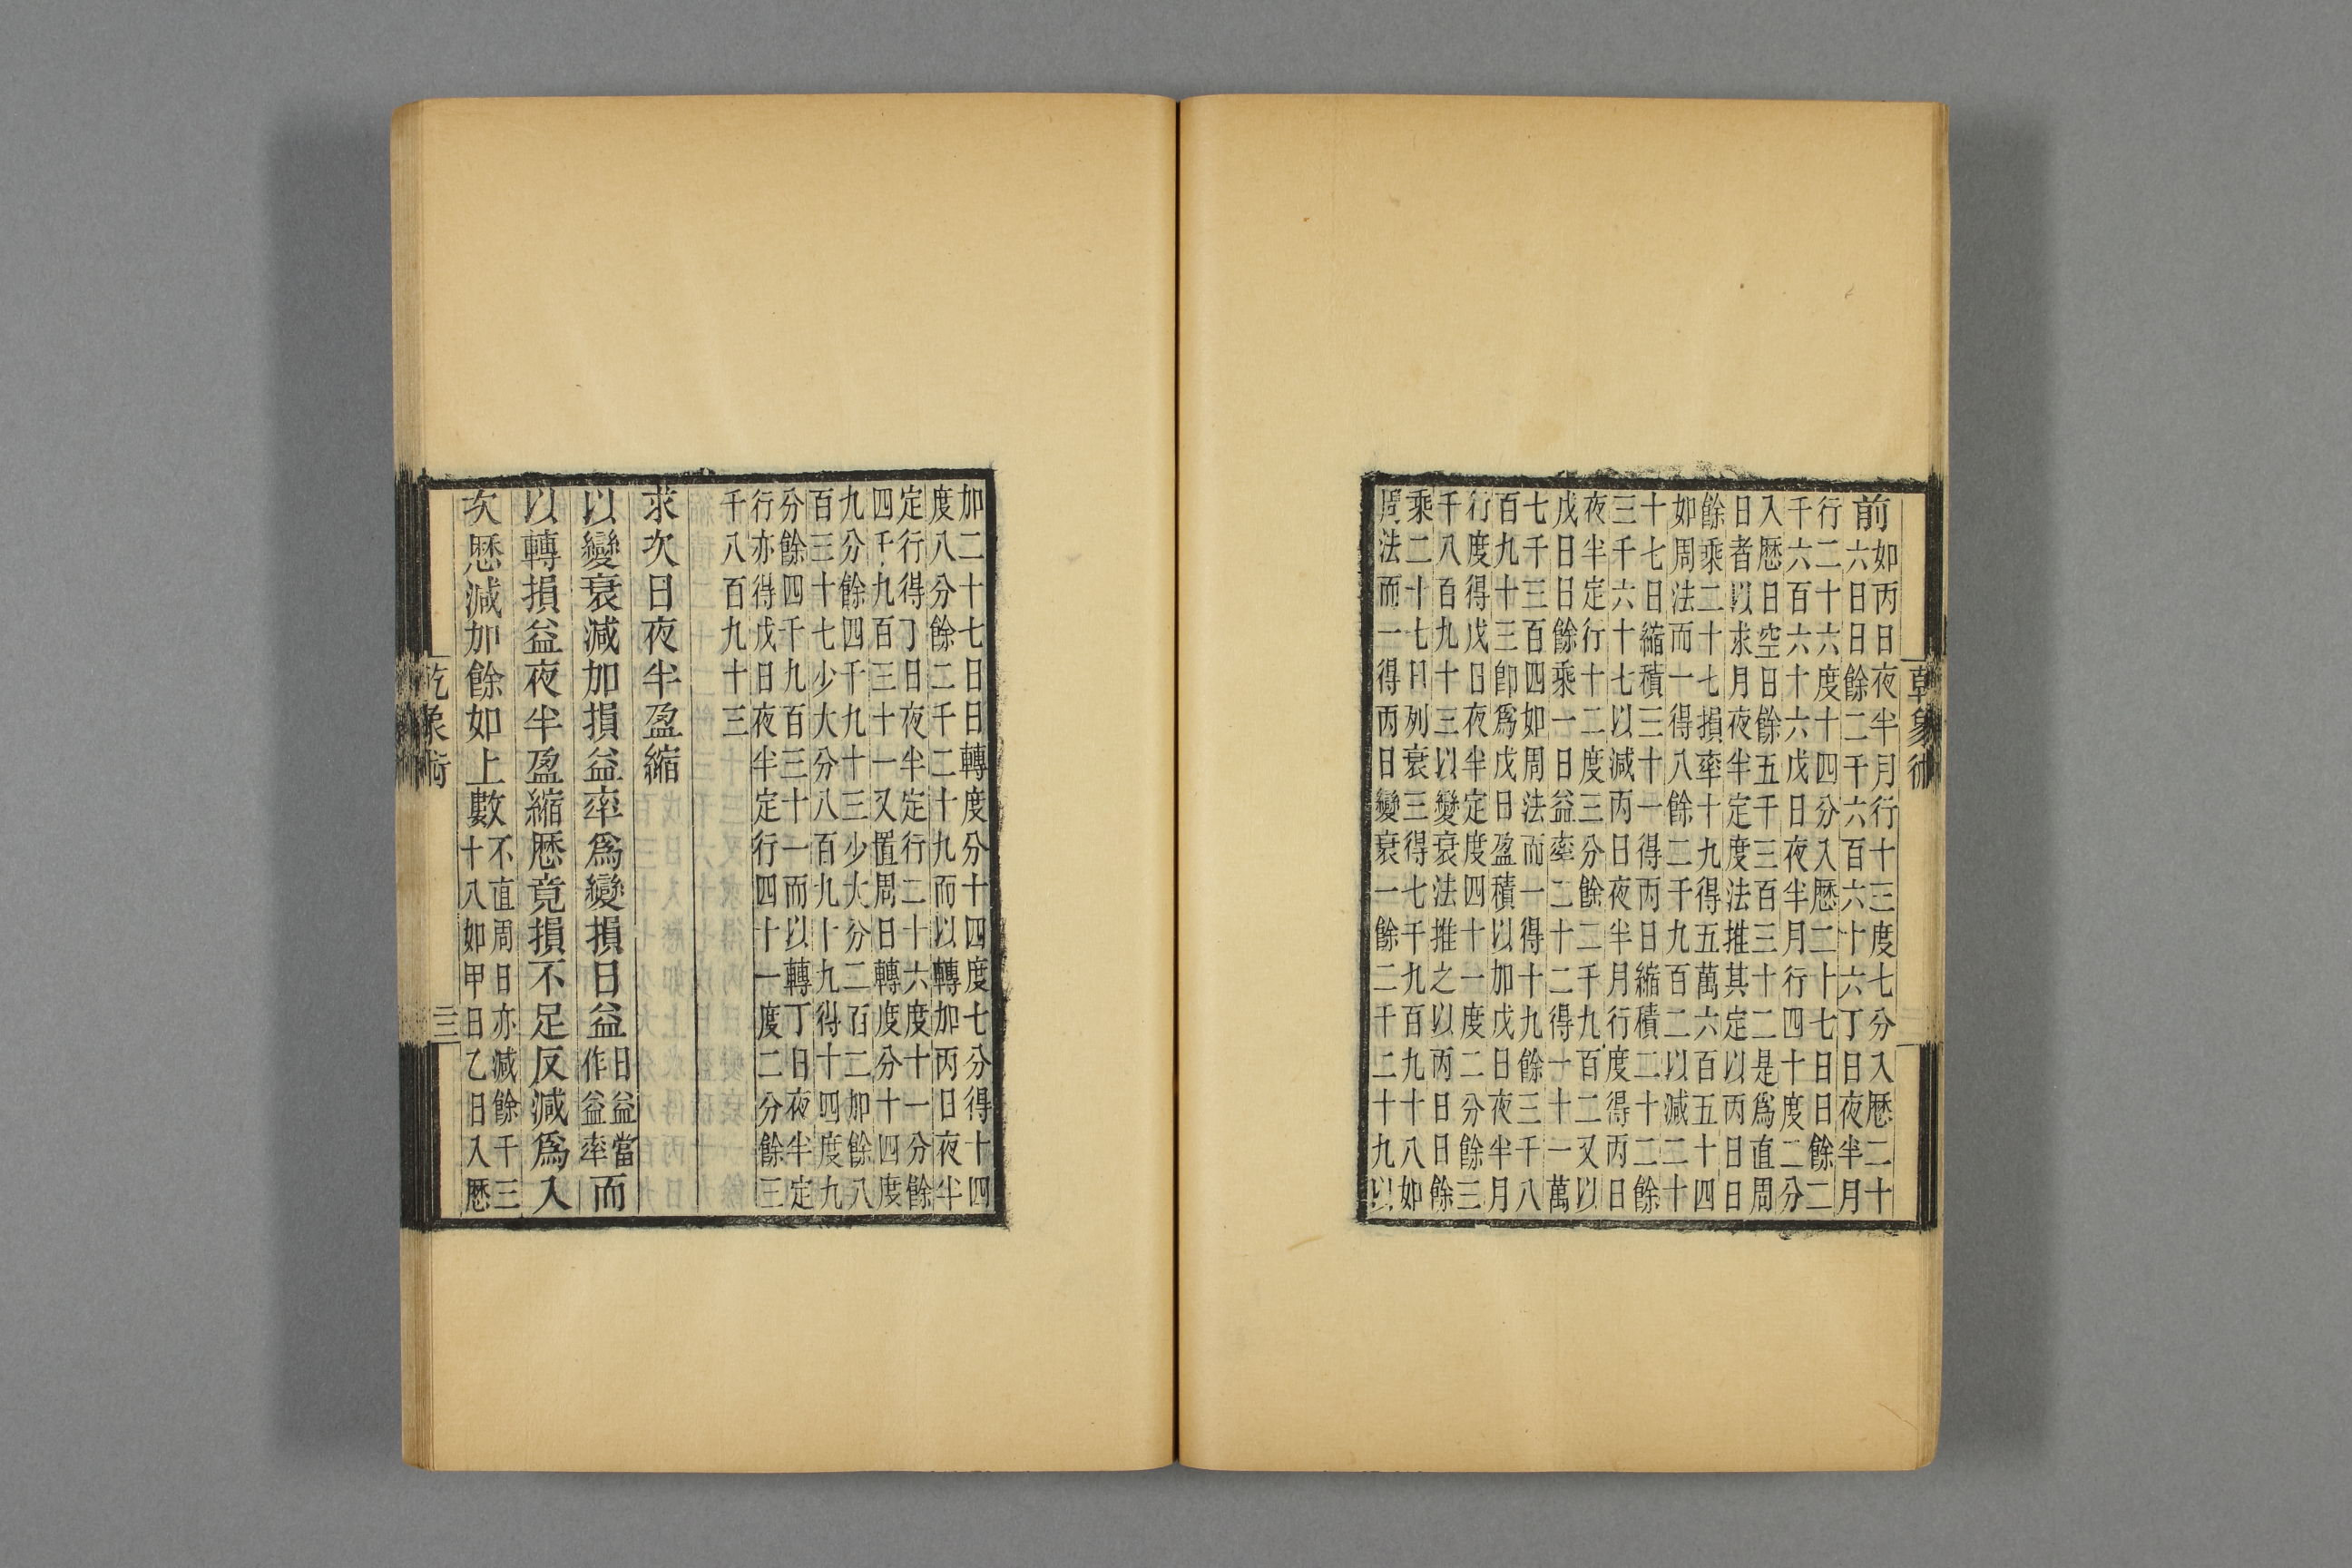 乾象術
前
如丙日夜半月行十三度七分入厯二十
六日日餘二千六百六十六丁日夜半月
行二十六度十四分入厯二十七日日餘二
千六百六十六戊日夜半月行四十度二分
入厯日空日餘五千三百三十二是爲直周
日者以求月夜半定度法推其定以丙日日
餘乘二十七損率十九得五萬六百五十四
如周法而一得八餘二千九百二以減二十
十七日縮積三十一得丙日縮積二十二餘
三千六十七以減丙日夜半月行度得丙日
夜半定行十二度三分餘二千九百二又以
戊日日餘乘一日益率二十二得一十一萬
七千三百四如周法而一得十九餘三千八
百九十三卽爲戊日盈積以加戊日夜半月
行度得戊日夜半定度四十一度二分餘三
千八百九十三以變衰法推之以丙日日餘
乘二十七日列衰三得七千九百九十八如
周法而一得丙日變衰一餘二千二十九以
加二十七日日轉度分十四度七分得十四
度八分餘二千二十九而以轉加丙日夜半
定行得丁日夜半定行二十六度十一分餘
四千九百三十一又置周日轉度分十四度
九分餘四千九十三少大分二百二加餘八
百三十七少大分八百九十九得十四度九
分餘四千九百三十一而以轉丁日夜半定
行亦得戊日夜半定行四十一度二分餘三
千八百九十三
求次日夜半盈縮
以變衰減加損益率爲變損日益日益當作益率而
以轉損益夜半盈縮厯竟損不足反減爲入
次厯減加餘如上數不直周日亦減餘千三十八如甲日乙日入厯
乾象術
三